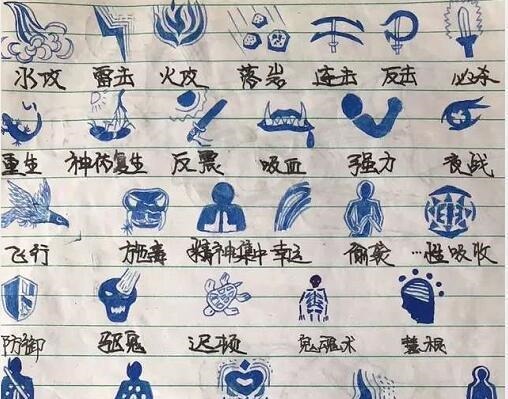 水攻 雷击 火攻 落岩 连击 反击 必杀
重生 神依复生 反震 吸血 强力 夜战
飞行 施毒 精神集中 幸运 偷袭 …性吸收
防御 驱鬼 迟顿 鬼魂术 慧根